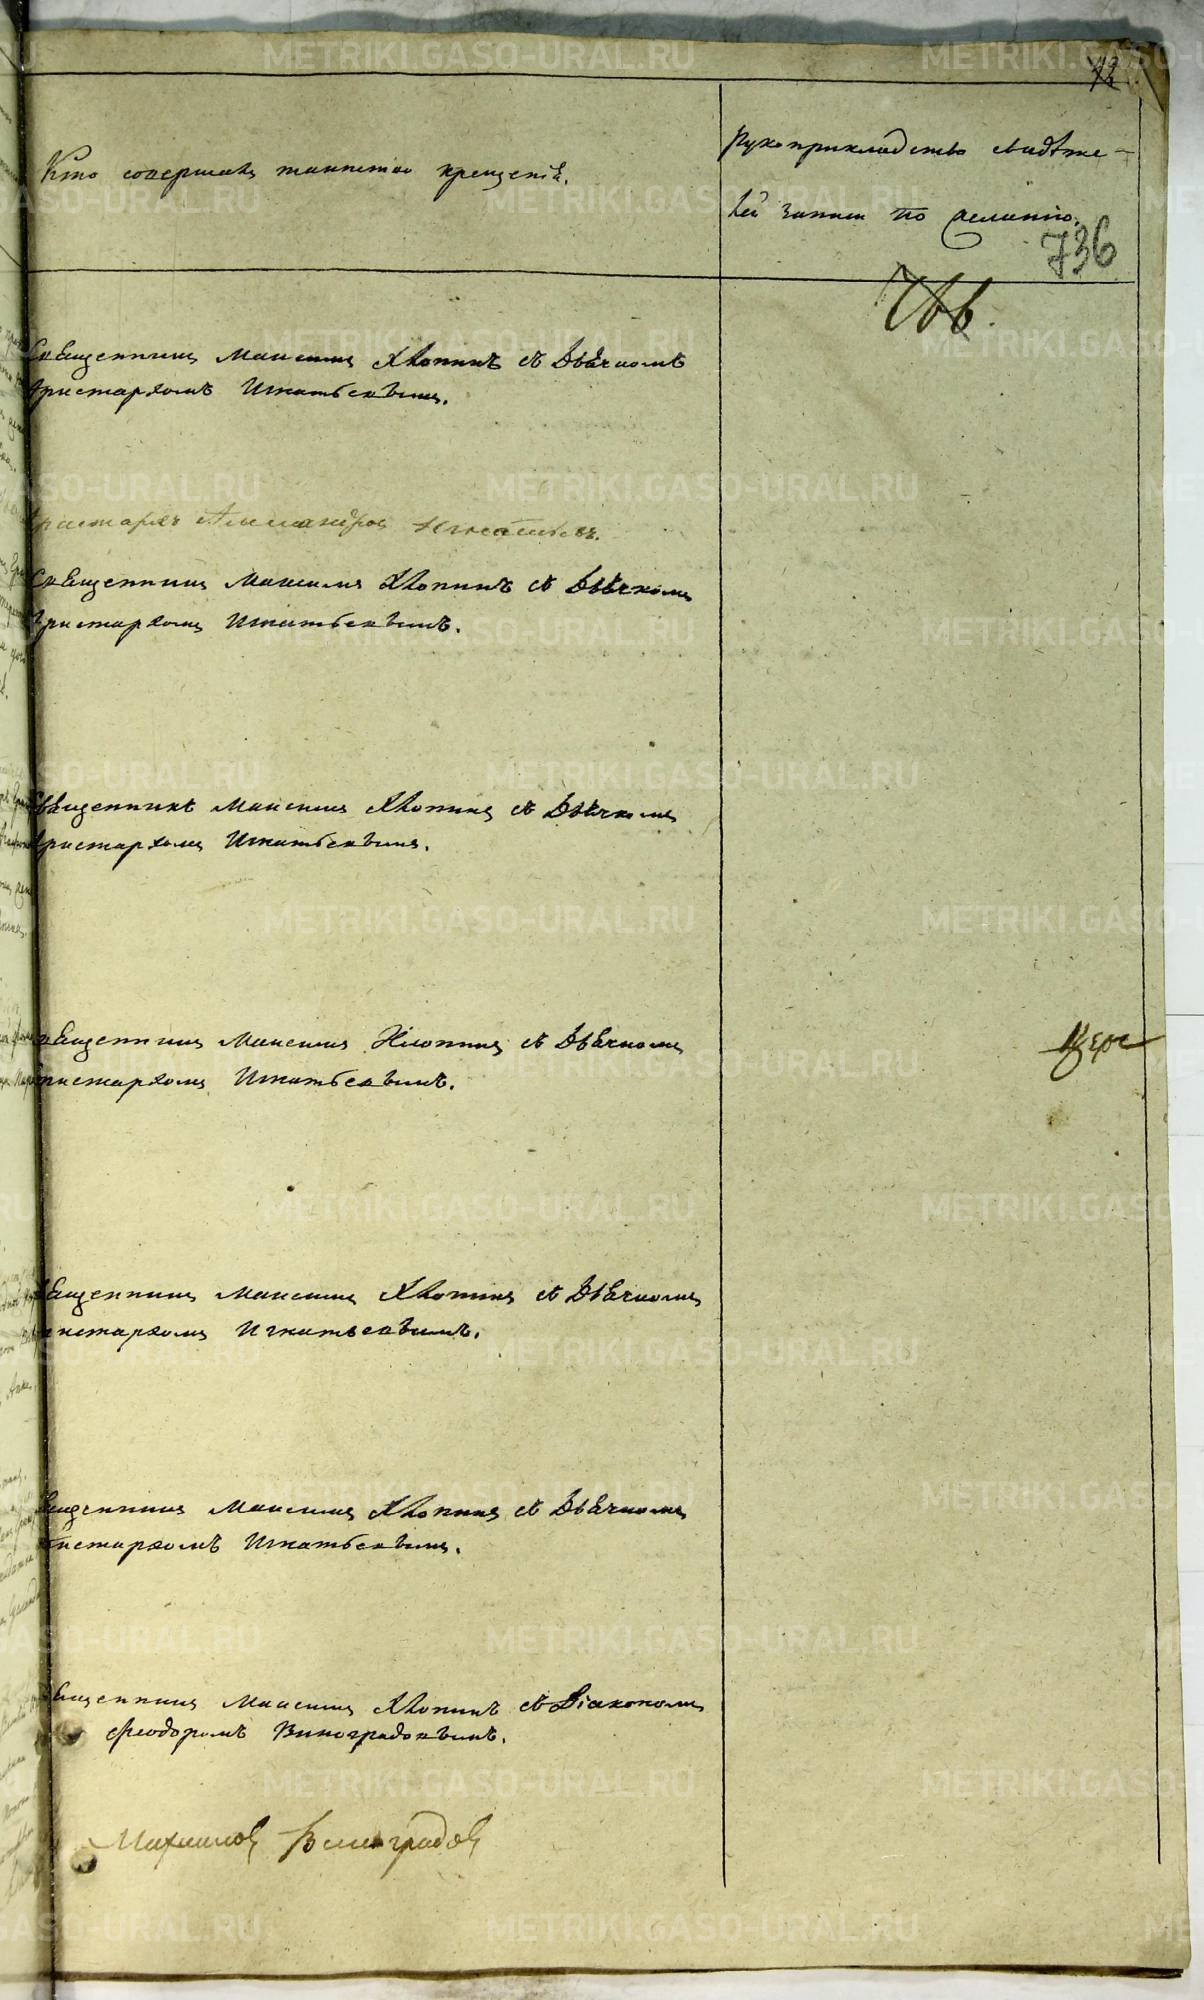 12
Кто совершалъ таинство крещенія.
Рукоприкладство свидѣте-
лей записи по желанію.
736
Священникъ Максимъ Хлопинъ съ Дьячкомъ
Аристархомъ Игнатьевымъ.
Аристархъ Александровъ Игнатьевъ.
Священникъ Максимъ Хлопинъ съ Дьячкомъ
Аристархомъ Игнатьевымъ.
Священникъ Максимъ Хлопинъ съ Дьячкомъ
Аристархомъ Игнатьевымъ.
Священникъ Максимъ Хлопинъ съ Дьячкомъ
Аристархомъ Игнатьевымъ.
Священникъ Максимъ Хлопинъ съ Дьячкомъ
Аристархомъ Игнатьевымъ.
Священникъ Максимъ Хлопинъ съ Дьячкомъ
Аристархомъ Игнатьевымъ.
Священникъ Максимъ Хлопинъ съ Діакономъ
Феодоромъ Виноградовымъ.
Виноградовъ
METRIKI.GASO-URAL.RU